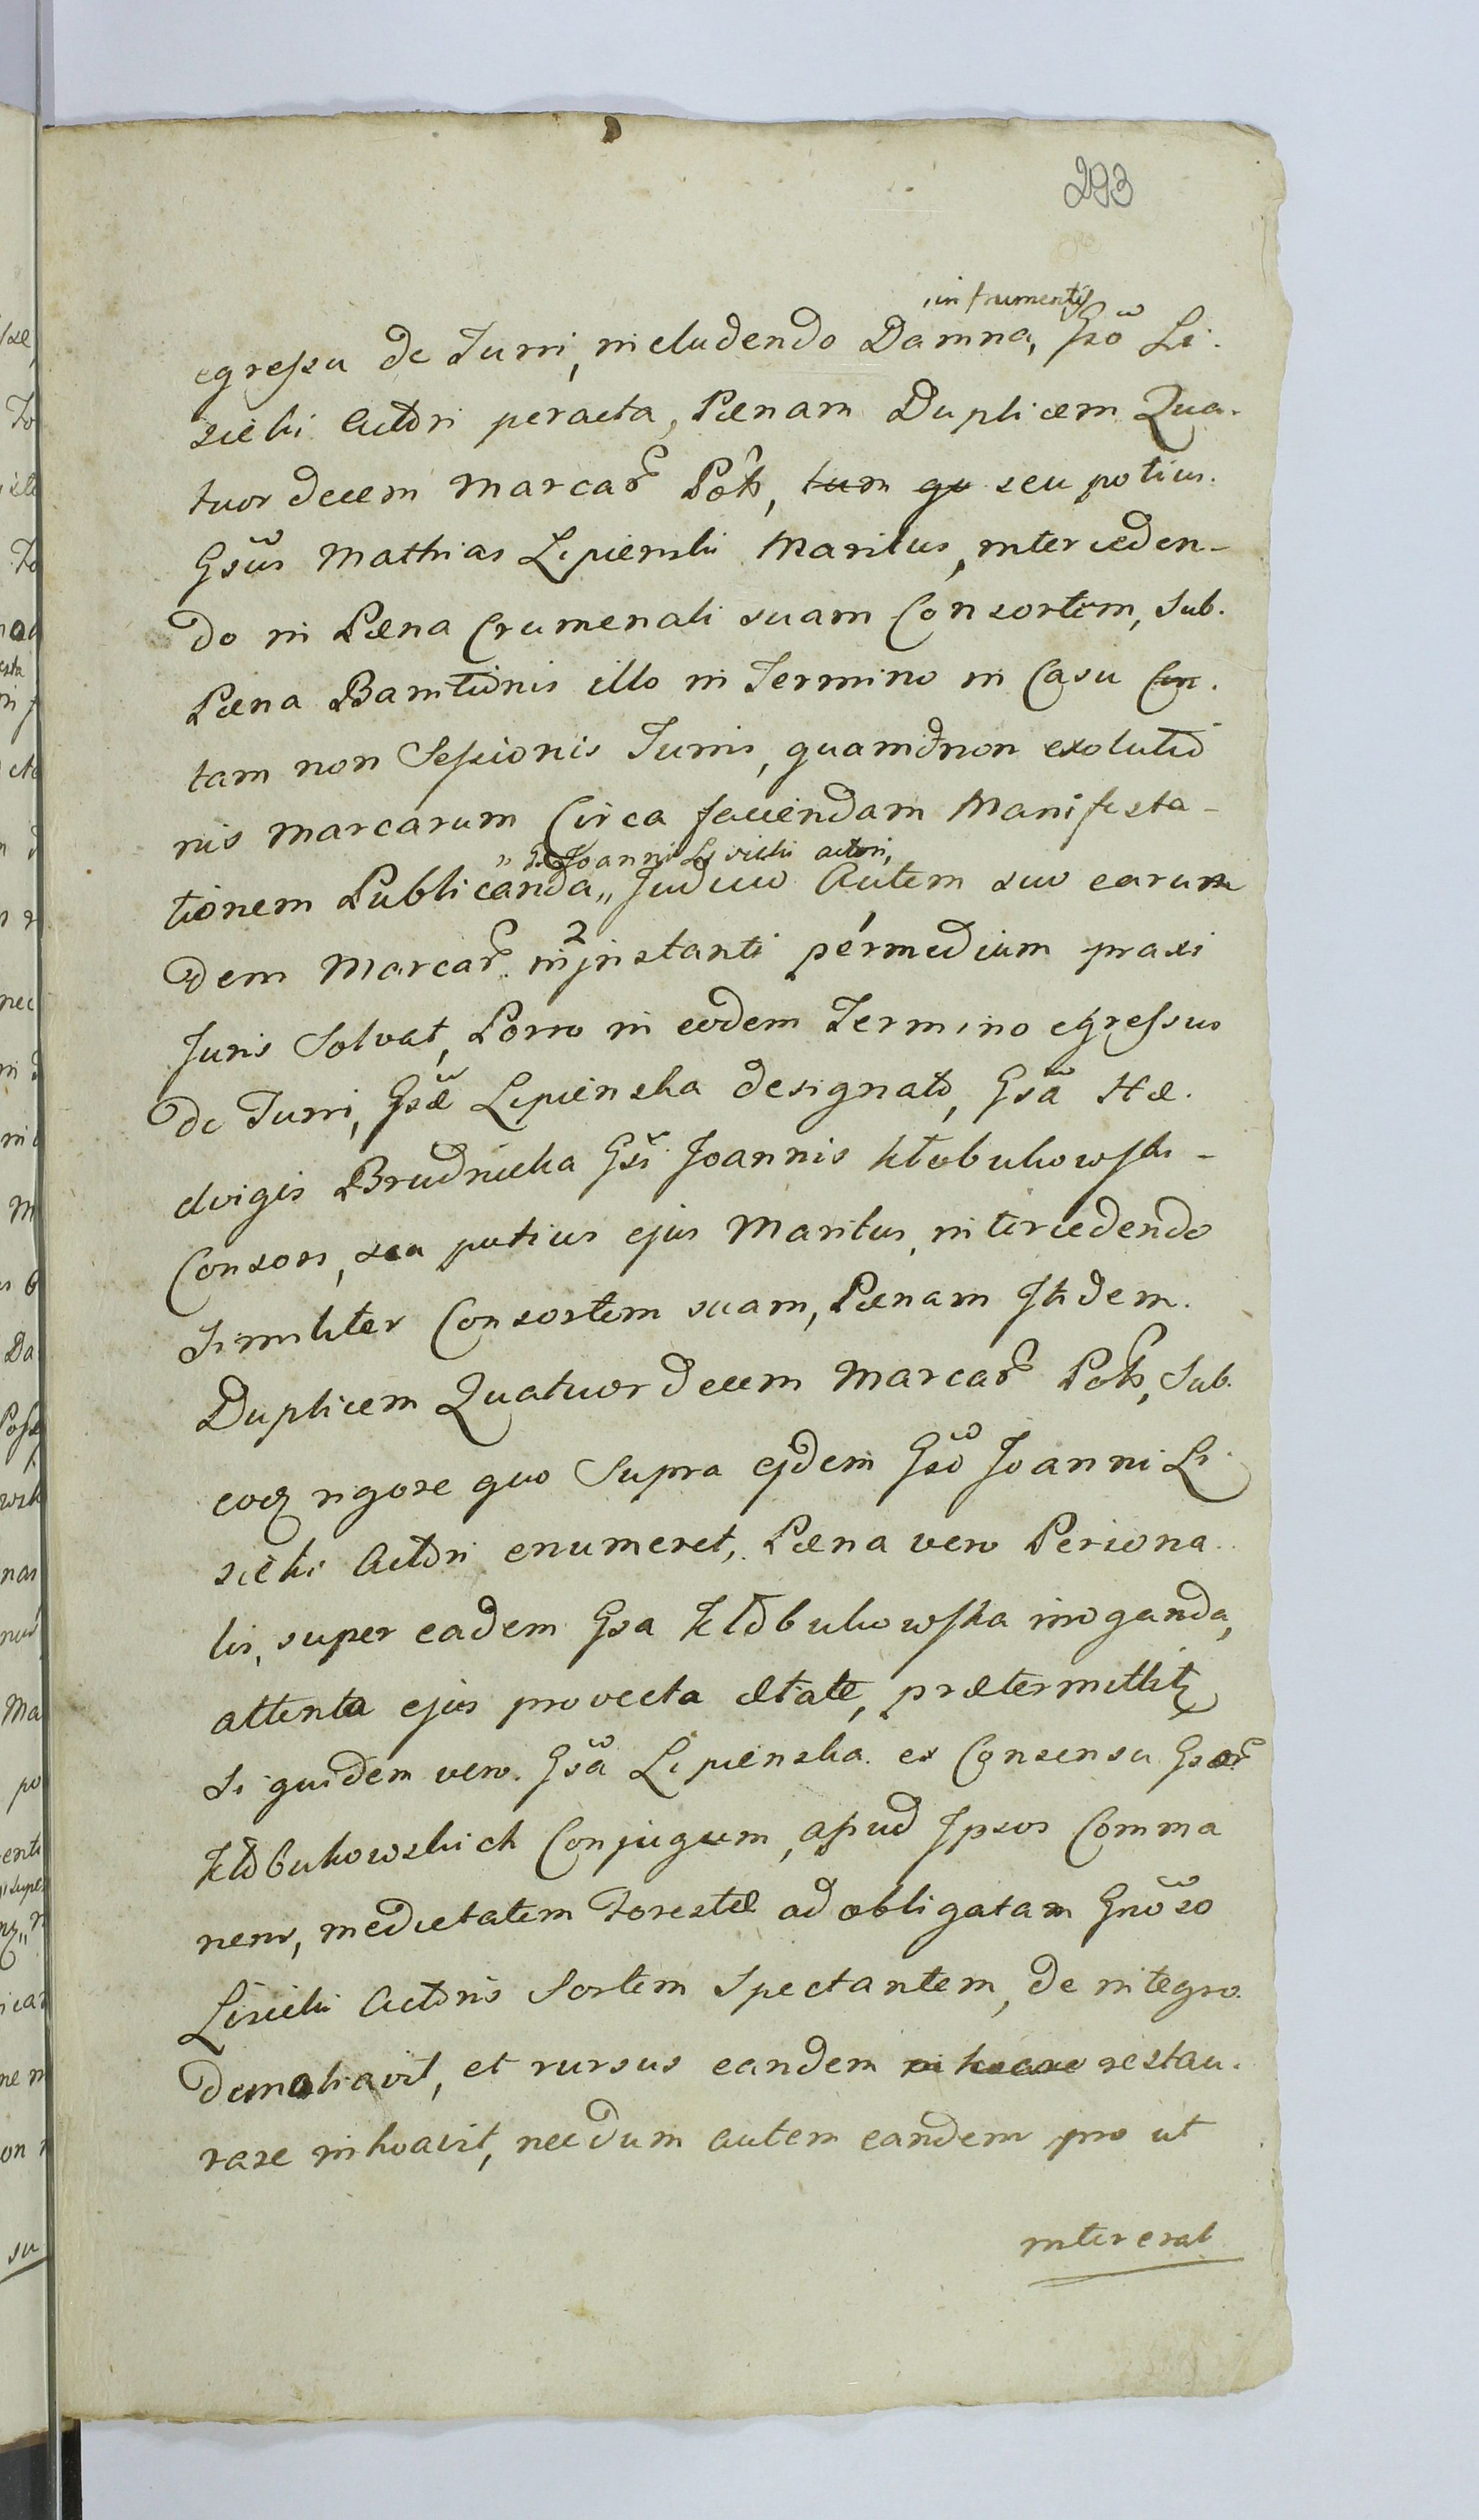 293
in frumentis
egressu de Turri, includendo Damna, Gsō Li-
sicki Actori peracta, Pænam Duplicem Qua-
tuordecem Marcar Polh, tum qu seu potius
Gsūs Mathias Lipienski Maritus, interceden-
do in Pæna Crumenali suam Consortem, Sub
Pæna Banitionis illo in Termino in Casu
tam non Sessionis Turris, quam non exolutio
nis Marcarum Circa faciendam Manifesta-
" Gsō Joanni Lisicki actori,
tionem Publicanda „ Judicio Autem suo earun
dem Marcar in 2 instanti per medium praxi
Juris Solvat, Porro in eodem Termino egressus
de Turri, Gsæ Lipienska designato, Gsā Hæ-
dvigis Brudnicka Gsi Joannis Kłobukowski -
Consors, seu potius ejus Maritus, intercedendo
Similiter Consortem suam, Pænam Itidem
Duplicem Quatuordecem Marcar Polh, Sub
eoq rigore quo Supra ejdem Gsō Joanni Li
sicki Actori enumeret, Pæna vero Persona-
lis, super eadem Gsa Kłobukowska irroganda,
attenta ejus provecta ætate, prætermittitz
Si quidem vero Gsā Lipienska ex Consensu Gsor
Kłobukowskich Conjugum, apud Ipsos Comma
nens, medietatem Forestæ ad obligatam Gnōso
Lisicki Actoris Sortem Spectantem, de integro
demoliavit, et rursus eandem restau-
rare inhoavit, needum autem eandem pro ut
intererat